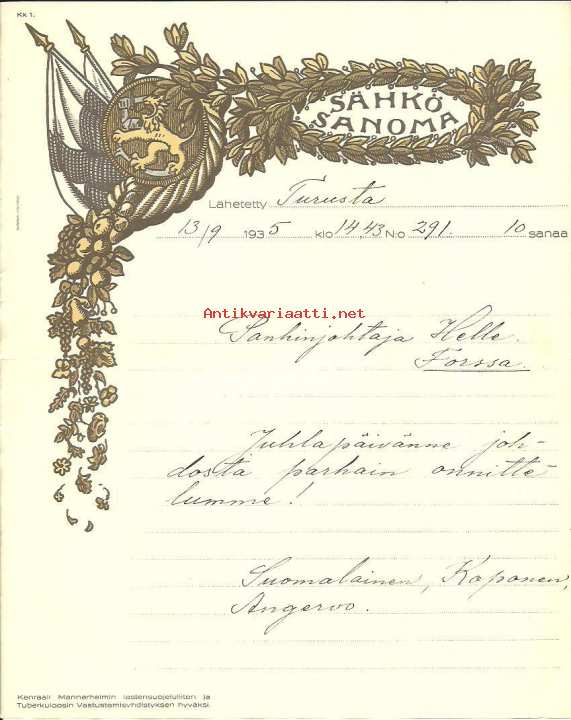 Kk 1.
SÄHKÖ
SANOMA
Lähetetty Turusta
13/9 1935 klo 14,43 N:o 291. 10 sanaa
Antikvariaatti.net
Pankinjohtaja Helle.
Forssa.
Juhlapäivänne joh-
dosta parhain onnitte-
lumme!
Suomalainen, Koponen,
Angervo.
Kenraali Mannerheimin lastensuojeluliiton ja
Tuberkuloosin Vastustamisyhdistyksen hyväksi.